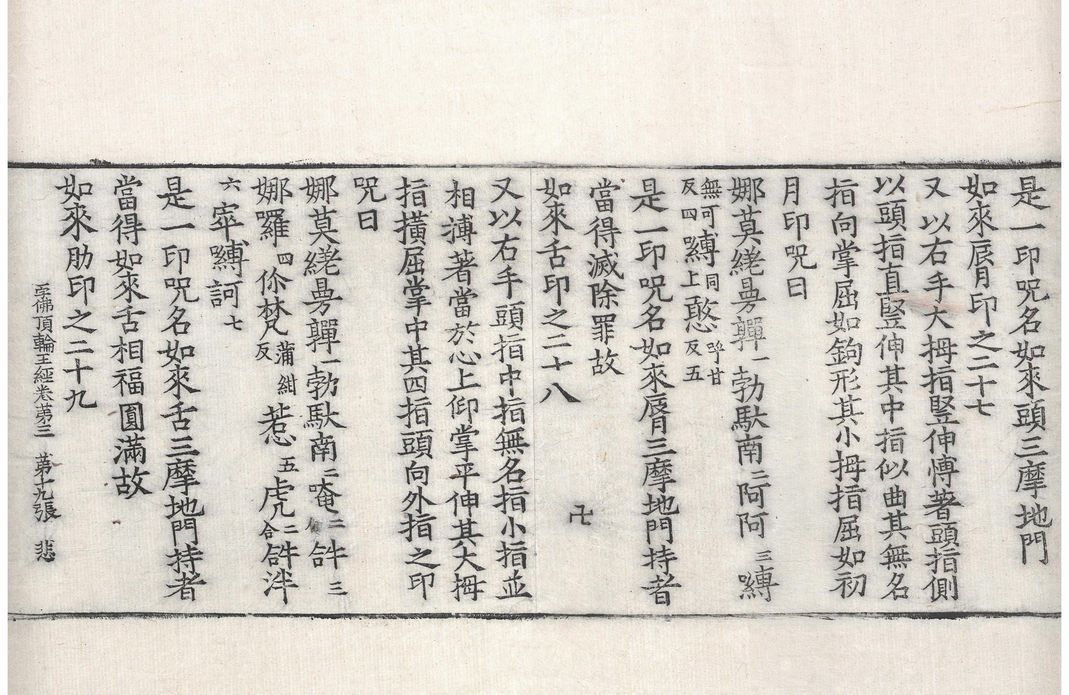 是一印呪名如來頭三摩地門
如來脣印之二十七
又以右手大拇指豎伸愽著頭指側
以頭指直豎伸其中指似曲其無名
指向掌屈如鉤形其小拇指屈如初
月印呪曰
娜莫繞曼嚲一勃馱南二阿阿三嚩
無可反四嚩同上憨呼甘反五
是一印呪名如來脣三摩地門持者
當得滅除罪故
如來舌印之二十八
卍
又以右手頭指中指無名指小指並
相漙著當於心上仰掌平伸其大拇
指橫屈掌中其四指頭向外指之印
呪曰
娜莫繞曼嚲一勃馱南二唵二合㖿三
娜囉四你梵蒲紺反惹五虎二合㖿泮
六寧嚩訶七
是一印呪名如來舌三摩地門持者
當得如來舌相福圓滿故
如來肋印之二十九
佛頂輪王經卷第三 第十九張 悲